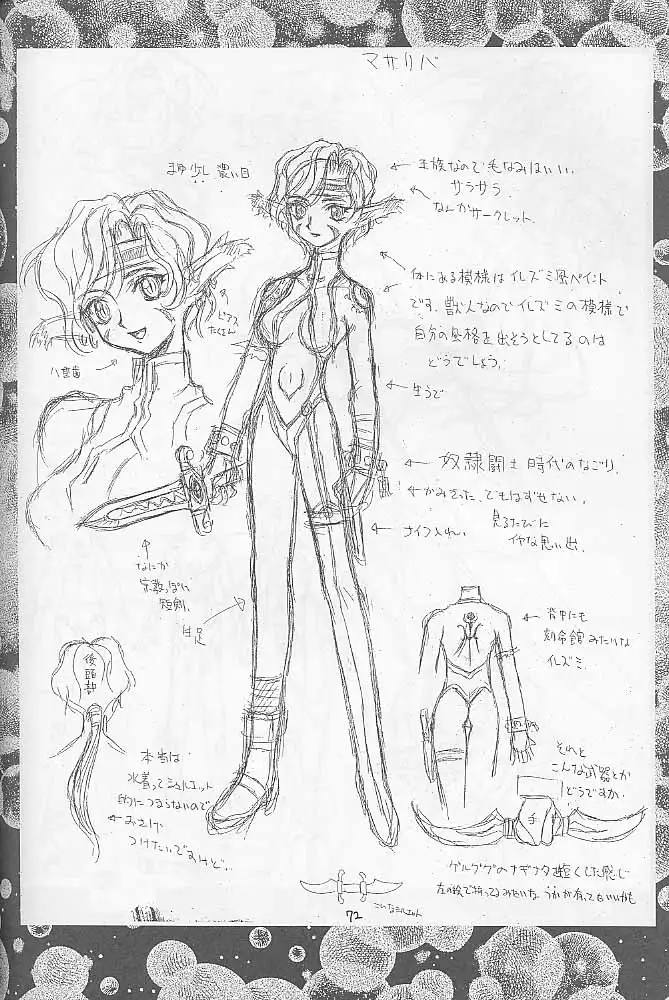 マサリバ
まゆ少し濃い目
王族なので毛なみはいい、
サラサラ
なんかサークレット
体にある模様はイレズミ風ペイント
です、獣人なのでイレズミの模様で
自分の
を出そうとしてるのは
どうでしょう、
ピアス
たくさん
八重歯
生うで
奴隷闘士時代のなごり、
でもはずせない、
見るたびに
イヤな思い出、
ナイフ入れ、
なにか
宗教っぽい
短剣、
生足
背中にも
刻命館みたいな
イレズミ
後頭部
本当は
水着ってシルエット
的につまらないので
おさげ
つけたいですけど…
それと
こんな武器とか
どうですか、
手
ゲルググのナギナタ短くした感じ
左の絵で持ってるみたいな
が有ってもいいかも
こんなシルエット
72